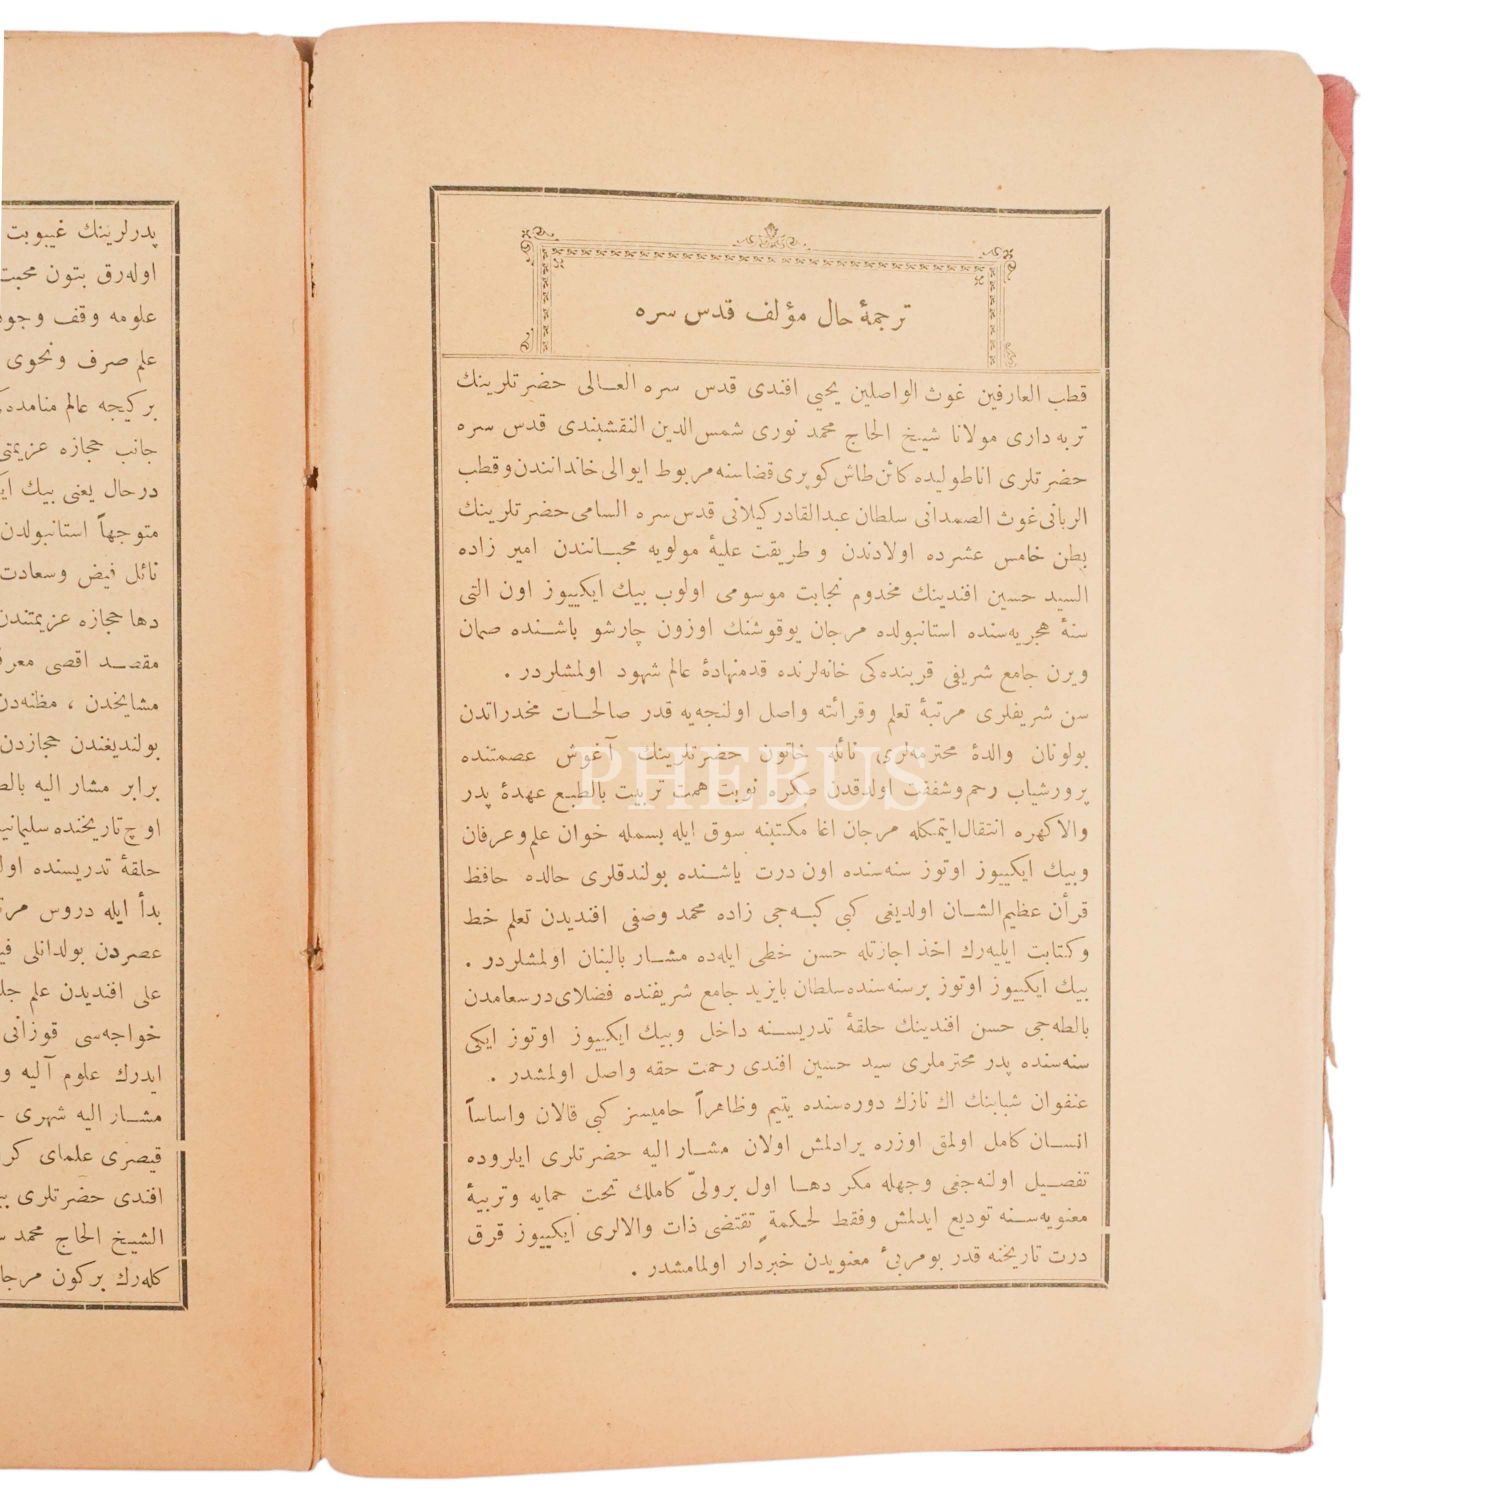 ترجمۀ حال مؤلف قدس سره
قطب العارفین غوث الواصلین یحیی افندی قدس سره العـالی حضرتلرینك
تربه داری مولانا شیخ الحاج محمد نوری شمس‌الدین النقشبندی قدس سره
حضرتلری اناطولیده كائن طاش كوپری قضاسنه مربوط ایوالی خاندانندن وقطب
الربانی غوث الصمدانی سلطان عبدالقادر كیلانی قدس سره السامی حضرتلرینك
بطن خامس عشرده اولادندن و طریقت علیۀ مولویه محبـانندن امیر زاده
السید حسین افندینك مخدوم نجابت موسومی اولوب بیك ایكییوز اون التی
سنۀ هجریه‌سنده استانبولده مرجان یوقوشنك اوزون چارشو باشـنده صمان
ویرن جامع شریفی قربنده‌كی خانه‌لرنده قدمنهادۀ عالم شهود اولمشلردر .
سن شریفلری مرتبۀ تعلم وقرائته واصل اولنجه‌یه قدر صالحـات مخدراتدن
بولونان والدۀ محترمه‌لری نائله خاتون حضرتلرینك آغوش عصمتنده
پرورشیاب رحم وشفقت اولدقدن صكره نوبت همت تربیت بالطبـع عهدۀ پدر
والاكهره انتقال ایتمكله مرجان اغا مكتبنه سوق ایله بسمله خوان علم وعرفان
وبیك ایكییوز اوتوز سنه‌سنده اون درت یاشـنده بولندقلری حالده حافظ
قرأن عظیم‌الشـان اولدیغی كبی كبـه‌جی زاده محمد وصفی افندیدن تعلم خط
وكتابت ایلیه‌رك اخذ اجازتله حسن خطی ایله‌ده مشـار بالبنان اولمشلردر .
بیك ایكییوز اوتوز برسنه‌سنده سلطان بایزید جامع شریفنده فضلای درسعامدن
بالطه‌جی حسن افندینك حلقۀ تدریسـنه داخل وبیك ایكییوز اوتوز ایكی
سنه‌سنده پدر محترملری سید حسین افندی رحمت حقه واصل اولمشدر .
عنفوان شبابنك اك نازك دوره‌سنده یتیم وظاهراً حامیسز كبی قالان واساساً
انسـان كامل اولمق اوزره یرادلمش اولان مشـار الیه حضرتلری ایلروده
تفصـیل اولنه‌جغی وجهله مكر دهـا اول برولیّ كاملك تحت حمایه وتربیۀ
معنویه‌سـنه تودیع ایدلمش وفقط لحكمةٍ تقتضی ذات والالری ایكییوز قرق
درت تاریخنه قدر بومربیٔ معنویدن خبردار اولمامشدر .
پدرلرینك غیبوبت
اوله‌رق بتون محبت
علومه وقف وجود
علم صرف ونحوی
بركیجه عالم منامده
جانب حجازه عزیمتی
درحال یعنی بیك
متوجهاً استانبولدن
نائل فیض وسعادت
دها حجازه عزیمتندن
مقصـد اقصی
مشایخدن ، مظنه‌دن
بولندیغندن حجازدن
برابر مشار الیه
اوچ تاریخنده
حلقۀ تدریسنده
بدأ ایله دروس
عصردن بولدانلی
علی افندیدن علم
خواجه‌سی قوزانی
ایدرك علوم آلیه و
مشـار الیه شهری
قیصری علمای
افندی حضرتلری
الشیـخ الحاج محمد
كله‌رك بركون
PHEBUS